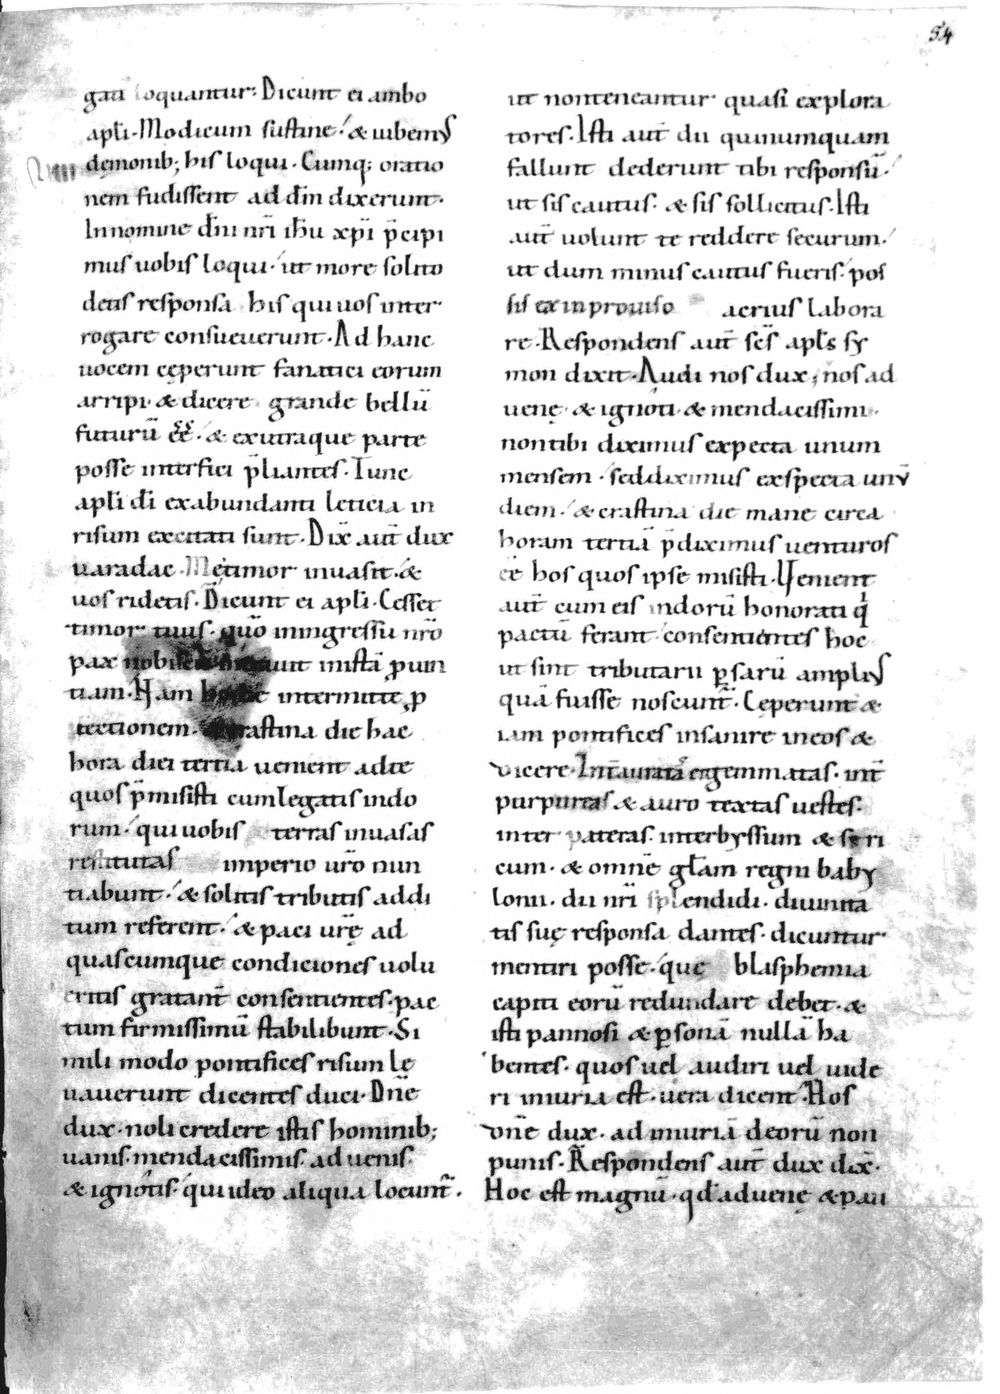 54
gati loquantur. Dicunt ei ambo
apłi. Modicum sustine. & iubemꝰ
demonib; his loqui. Cumq; oratio
nem fudissent ad dn̄m dixerunt.
In nomine dn̄i nr̄i ih̄u xp̄i p̄cipi
mus uobis loqui. ut more solito
detis responsa his qui uos inter
rogare consueuerunt. Ad hanc
uocem cęperunt fanatici eorum
arripi. & dicere grande bellū
futurū ēē. & ex utraque parte
posse interfici p̄liantes. Tunc
apłi di̅ ex abundanti leticia in
risum excitati sunt. Dix̄ aut̄ dux
uaradac. Me timor inuasit. &
uos ridetis. Dicunt ei apłi. Cesset
timor tuus. quō in ingressu nr̄o
pax nobiscum intrauit in istā ꝓuin
tiam. Nam hodie intermitte ꝓ
fectionem. crastina die hac
hora diei tertia uenient ad te
quos p̄misisti cum legatis indo
rum. qui uobis terras inuasas
restitutas imperio ur̄o nun
tiabunt. & solitis tributis addi
tum referent. & paci ur̄ę ad
quascumque condiciones uolu
eritis gratant̄ consentientes. pac
tum firmissimū stabilibunt. Si
mili modo pontifices risum le
uauerunt dicentes duci. Dn̄e
dux. noli credere istis hominib;
uanis. mendacissimis. aduenis.
& ignotis. qui ideo aliqua locunt̄.
ut non teneantur quasi explora
tores. Isti aut̄ dii qui numquam
fallunt dederunt tibi responsū.
ut sis cautus. & sis sollicitus. Isti
aut̄ uolunt te reddere securum.
ut dum minus cautus fueris. pos
sis ex inprouiso acrius labora
re. Respondens aut̄ sc̄s apłs sy
mon dixit. Audi nos dux, nos ad
uenę. & ignoti. & mendacissimi.
non tibi diximus expecta unum
mensem. sed diximus exspecta unū
diem. & crastina die mane circa
horam tertiā p̄diximus uenturos
ēē hos quos ipse misisti. Uenient
aut̄ cum eis indorū honorati qi
pactū ferant consentientes hoc
ut sint tributarii ꝑsarū ampliꝰ
quā fuisse noscunt̄. Cęperunt &
iam pontifices insanire in eos &
dicere. Int̄ aurata & gemmatas. int̄
purpureas & auro textas uestes.
inter pateras. inter byssum & seri
cum. & omnē głam regni baby
lonii. dii nr̄i splendidi. diuinita
tis suę responsa dantes. dicuntur
mentiri posse. quę blasphemia
capiti eorū redundare debet. &
isti pannosi & ꝑsonā nullā ha
bentes. quos uel audiri uel uide
ri iniuria est. uera dicent. Hos
dn̄e dux. ad iniuriā deorū non
punis. Respondens aut̄ dux dix̄.
Hoc est magnū. qd̄ aduenę & pau